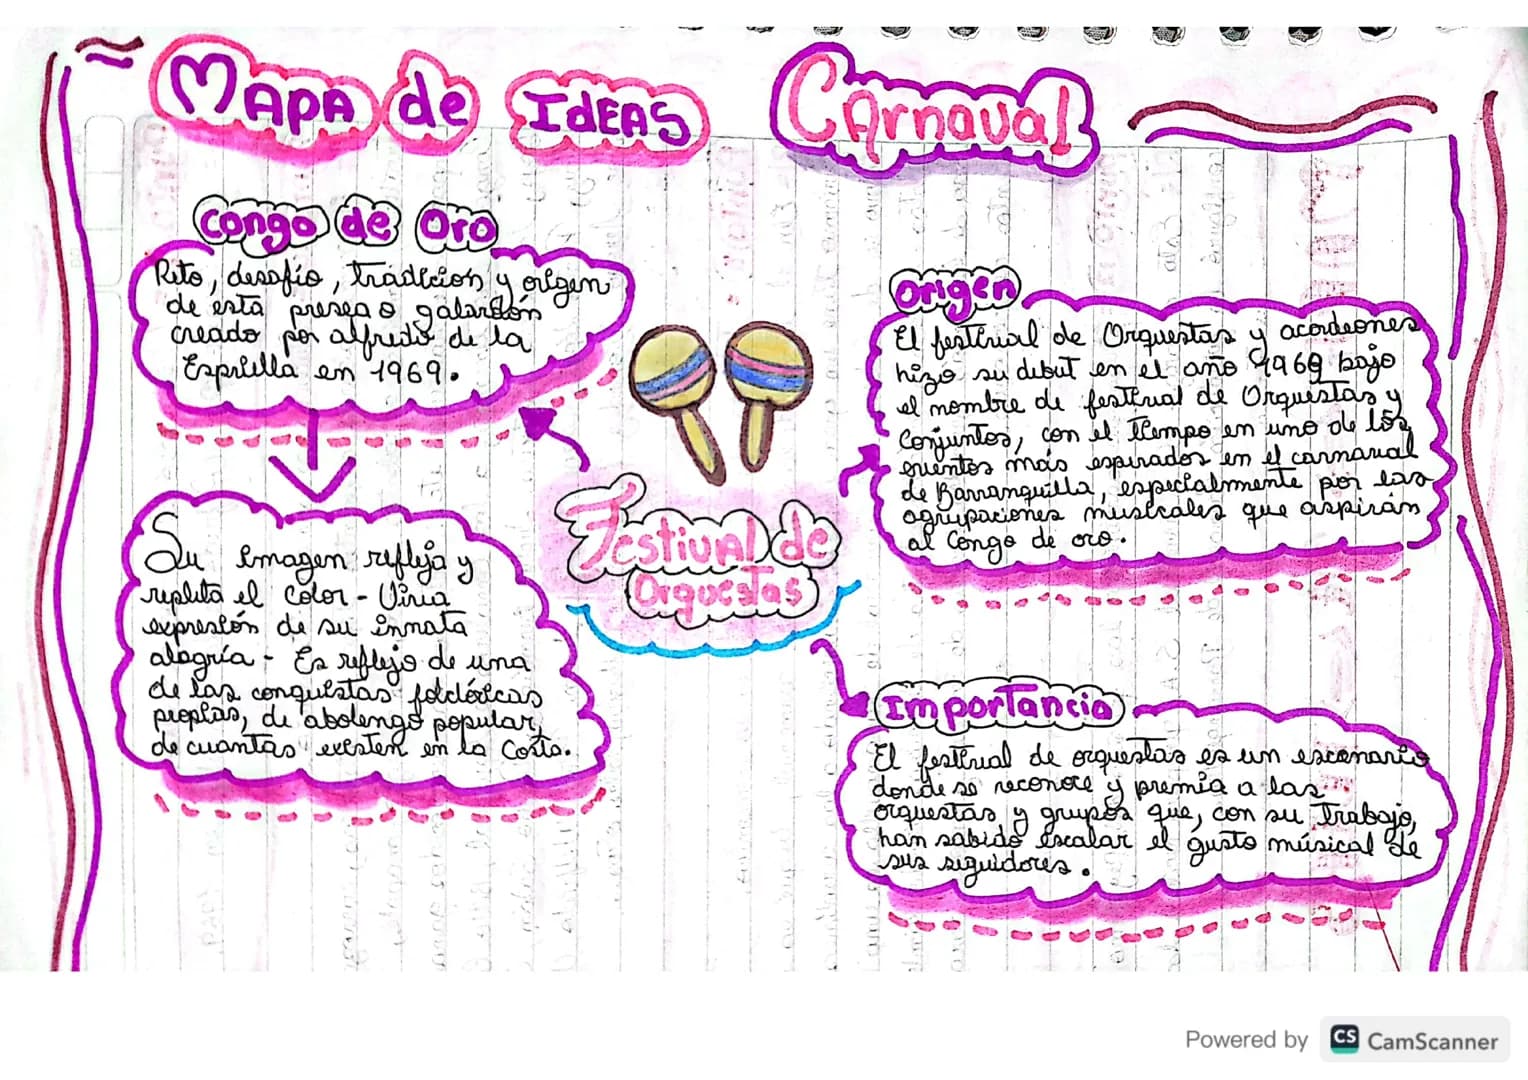 Mapa de Ideas Carnaval
Congo de Oro
Reto, desafío, tradición y origen
de esta presea o galardón
creado por alfredo de la
Espriella en 1969.
Su imagen refleja y
replita el color - Viva
expresión de su innata
alegría - Es reflejo de una
de las conquistas folclóricas
propias, de abolengo popular,
de cuantas existen en la Costa.
Festival de
Orquestas
Origen
El festival de Orquestas y acordeones
hizo su debut en el año 1969 bajo
el nombre de festival de Orquestas y
Conjuntos, con el tiempo en uno de los
eventos más esperados en el carnaval
de Barranquilla, especialmente por las
agrupaciones musicales que aspirán
al Congo de oro.
Importancia
El festival de orquestas es un escenario
donde se reconoce y premia a las
orquestas y grupos que, con su trabajo,
han sabido escalar el gusto músical de
sus seguidores.
Powered by CS CamScanner